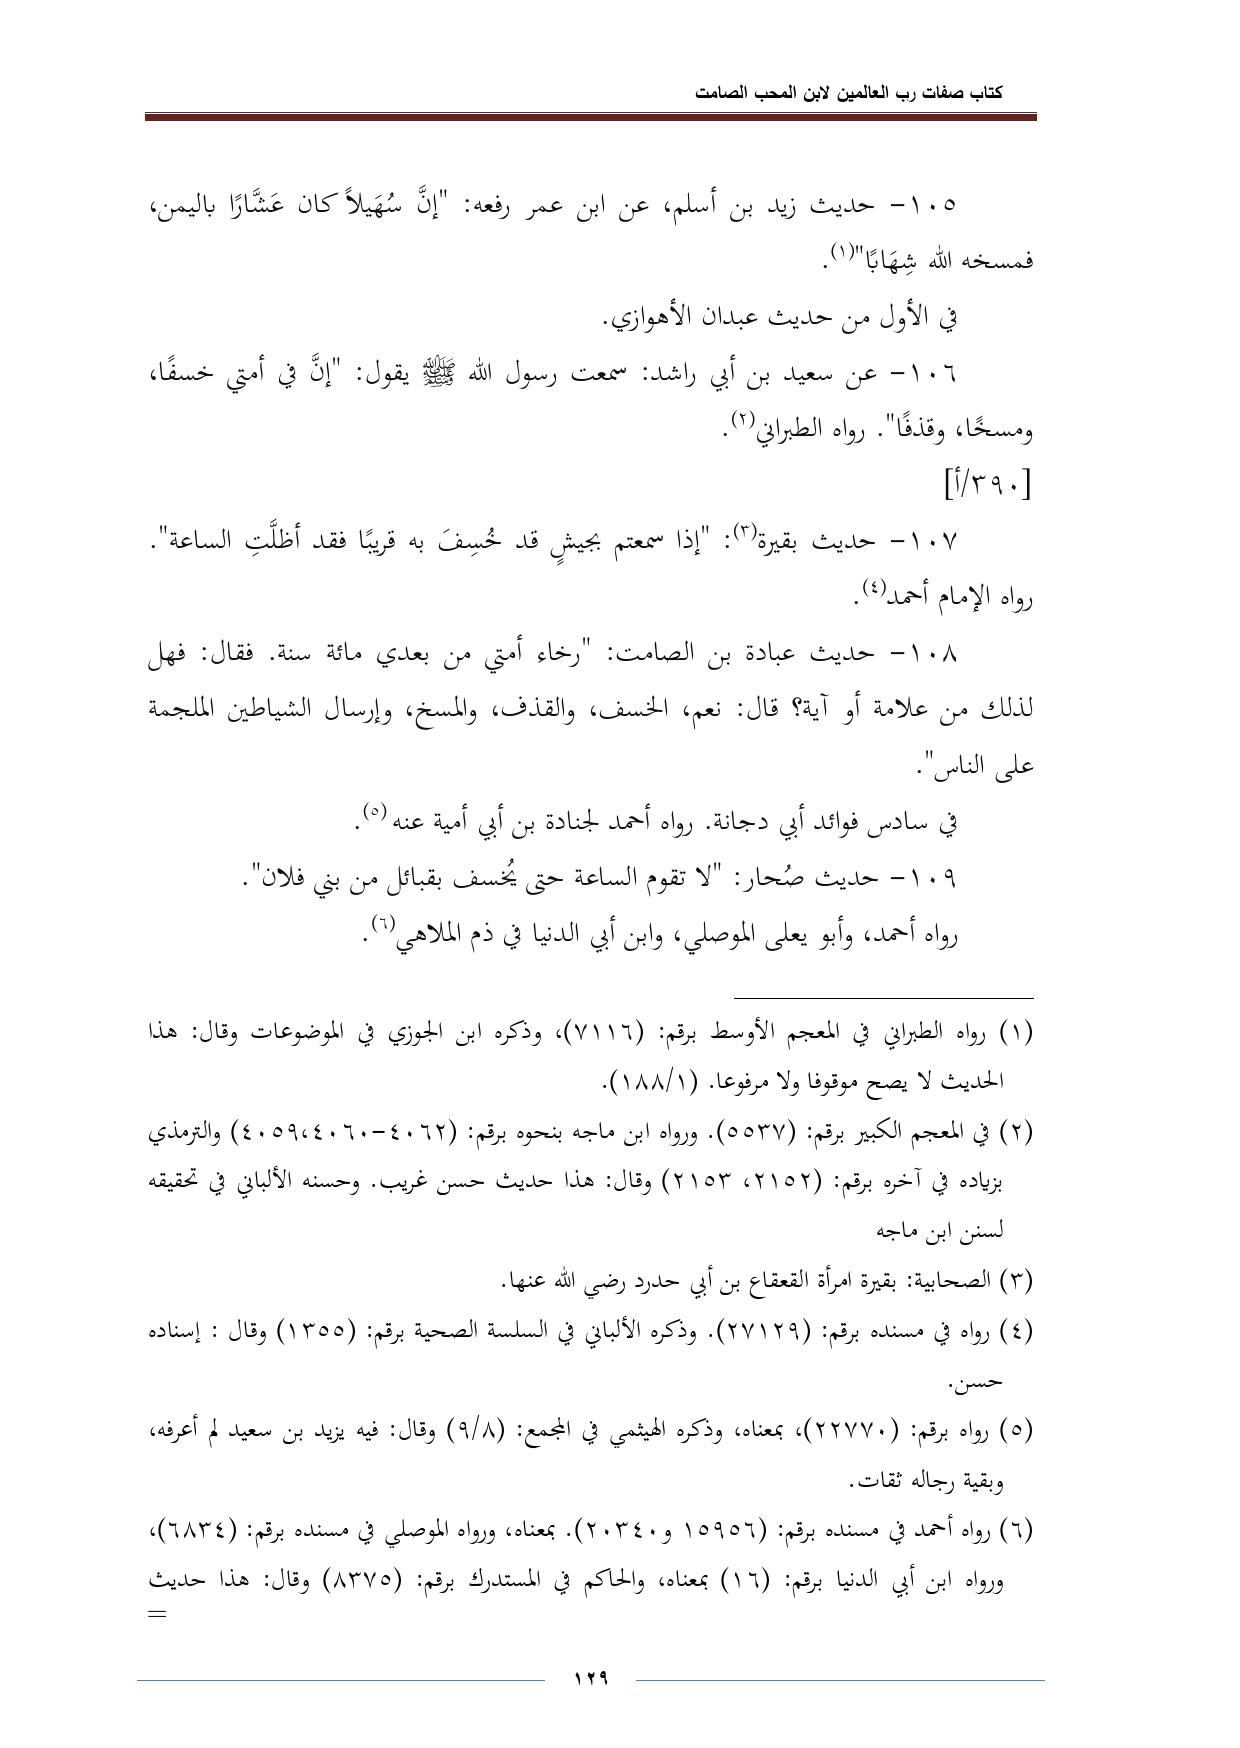 كتاب صفات رب العالمين لابن المحب الصامت
١٠٥- حديث زيد بن أسلم، عن ابن عمر رفعه: "إنَّ سُهَيلاً كان عَشَّارًا باليمن،
فمسخه الله شِهَابًا"(١).
في الأول من حديث عبدان الأهوازي.
١٠٦- عن سعيد بن أبي راشد: سمعت رسول الله ﷺ يقول: "إنَّ في أمتي خسفًا،
ومسخًا، وقذفًا". رواه الطبراني(٢).
[٣٩٠/أ]
١٠٧- حديث بقيرة(٣): "إذا سمعتم بجيشٍ قد خُسِفَ به قريبًا فقد أظلَّتِ الساعة".
رواه الإمام أحمد(٤).
١٠٨- حديث عبادة بن الصامت: "رخاء أمتي من بعدي مائة سنة. فقال: فهل
لذلك من علامة أو آية؟ قال: نعم، الخسف، والقذف، والمسخ، وإرسال الشياطين الملجمة
على الناس".
في سادس فوائد أبي دجانة. رواه أحمد لجنادة بن أبي أمية عنه(٥).
١٠٩- حديث صُحار: "لا تقوم الساعة حتى يُخسف بقبائل من بني فلان".
رواه أحمد، وأبو يعلى الموصلي، وابن أبي الدنيا في ذم الملاهي(٦).
(١) رواه الطبراني في المعجم الأوسط برقم: (٧١١٦)، وذكره ابن الجوزي في الموضوعات وقال: هذا
الحديث لا يصح موقوفا ولا مرفوعا. (١٨٨/١).
(٢) في المعجم الكبير برقم: (٥٥٣٧). ورواه ابن ماجه بنحوه برقم: (٤٠٥٩،٤٠٦٠-٤٠٦٢) والترمذي
بزياده في آخره برقم: (٢١٥٢، ٢١٥٣) وقال: هذا حديث حسن غريب. وحسنه الألباني في تحقيقه
لسنن ابن ماجه
(٣) الصحابية: بقيرة امرأة القعقاع بن أبي حدرد رضي الله عنها.
(٤) رواه في مسنده برقم: (٢٧١٢٩). وذكره الألباني في السلسة الصحية برقم: (١٣٥٥) وقال : إسناده
حسن.
(٥) رواه برقم: (٢٢٧٧٠)، بمعناه، وذكره الهيثمي في المجمع: (٩/٨) وقال: فيه يزيد بن سعيد لم أعرفه،
وبقية رجاله ثقات.
(٦) رواه أحمد في مسنده برقم: (١٥٩٥٦ و٢٠٣٤٠). بمعناه، ورواه الموصلي في مسنده برقم: (٦٨٣٤)،
ورواه ابن أبي الدنيا برقم: (١٦) بمعناه، والحاكم في المستدرك برقم: (٨٣٧٥) وقال: هذا حديث
=
١٢٩